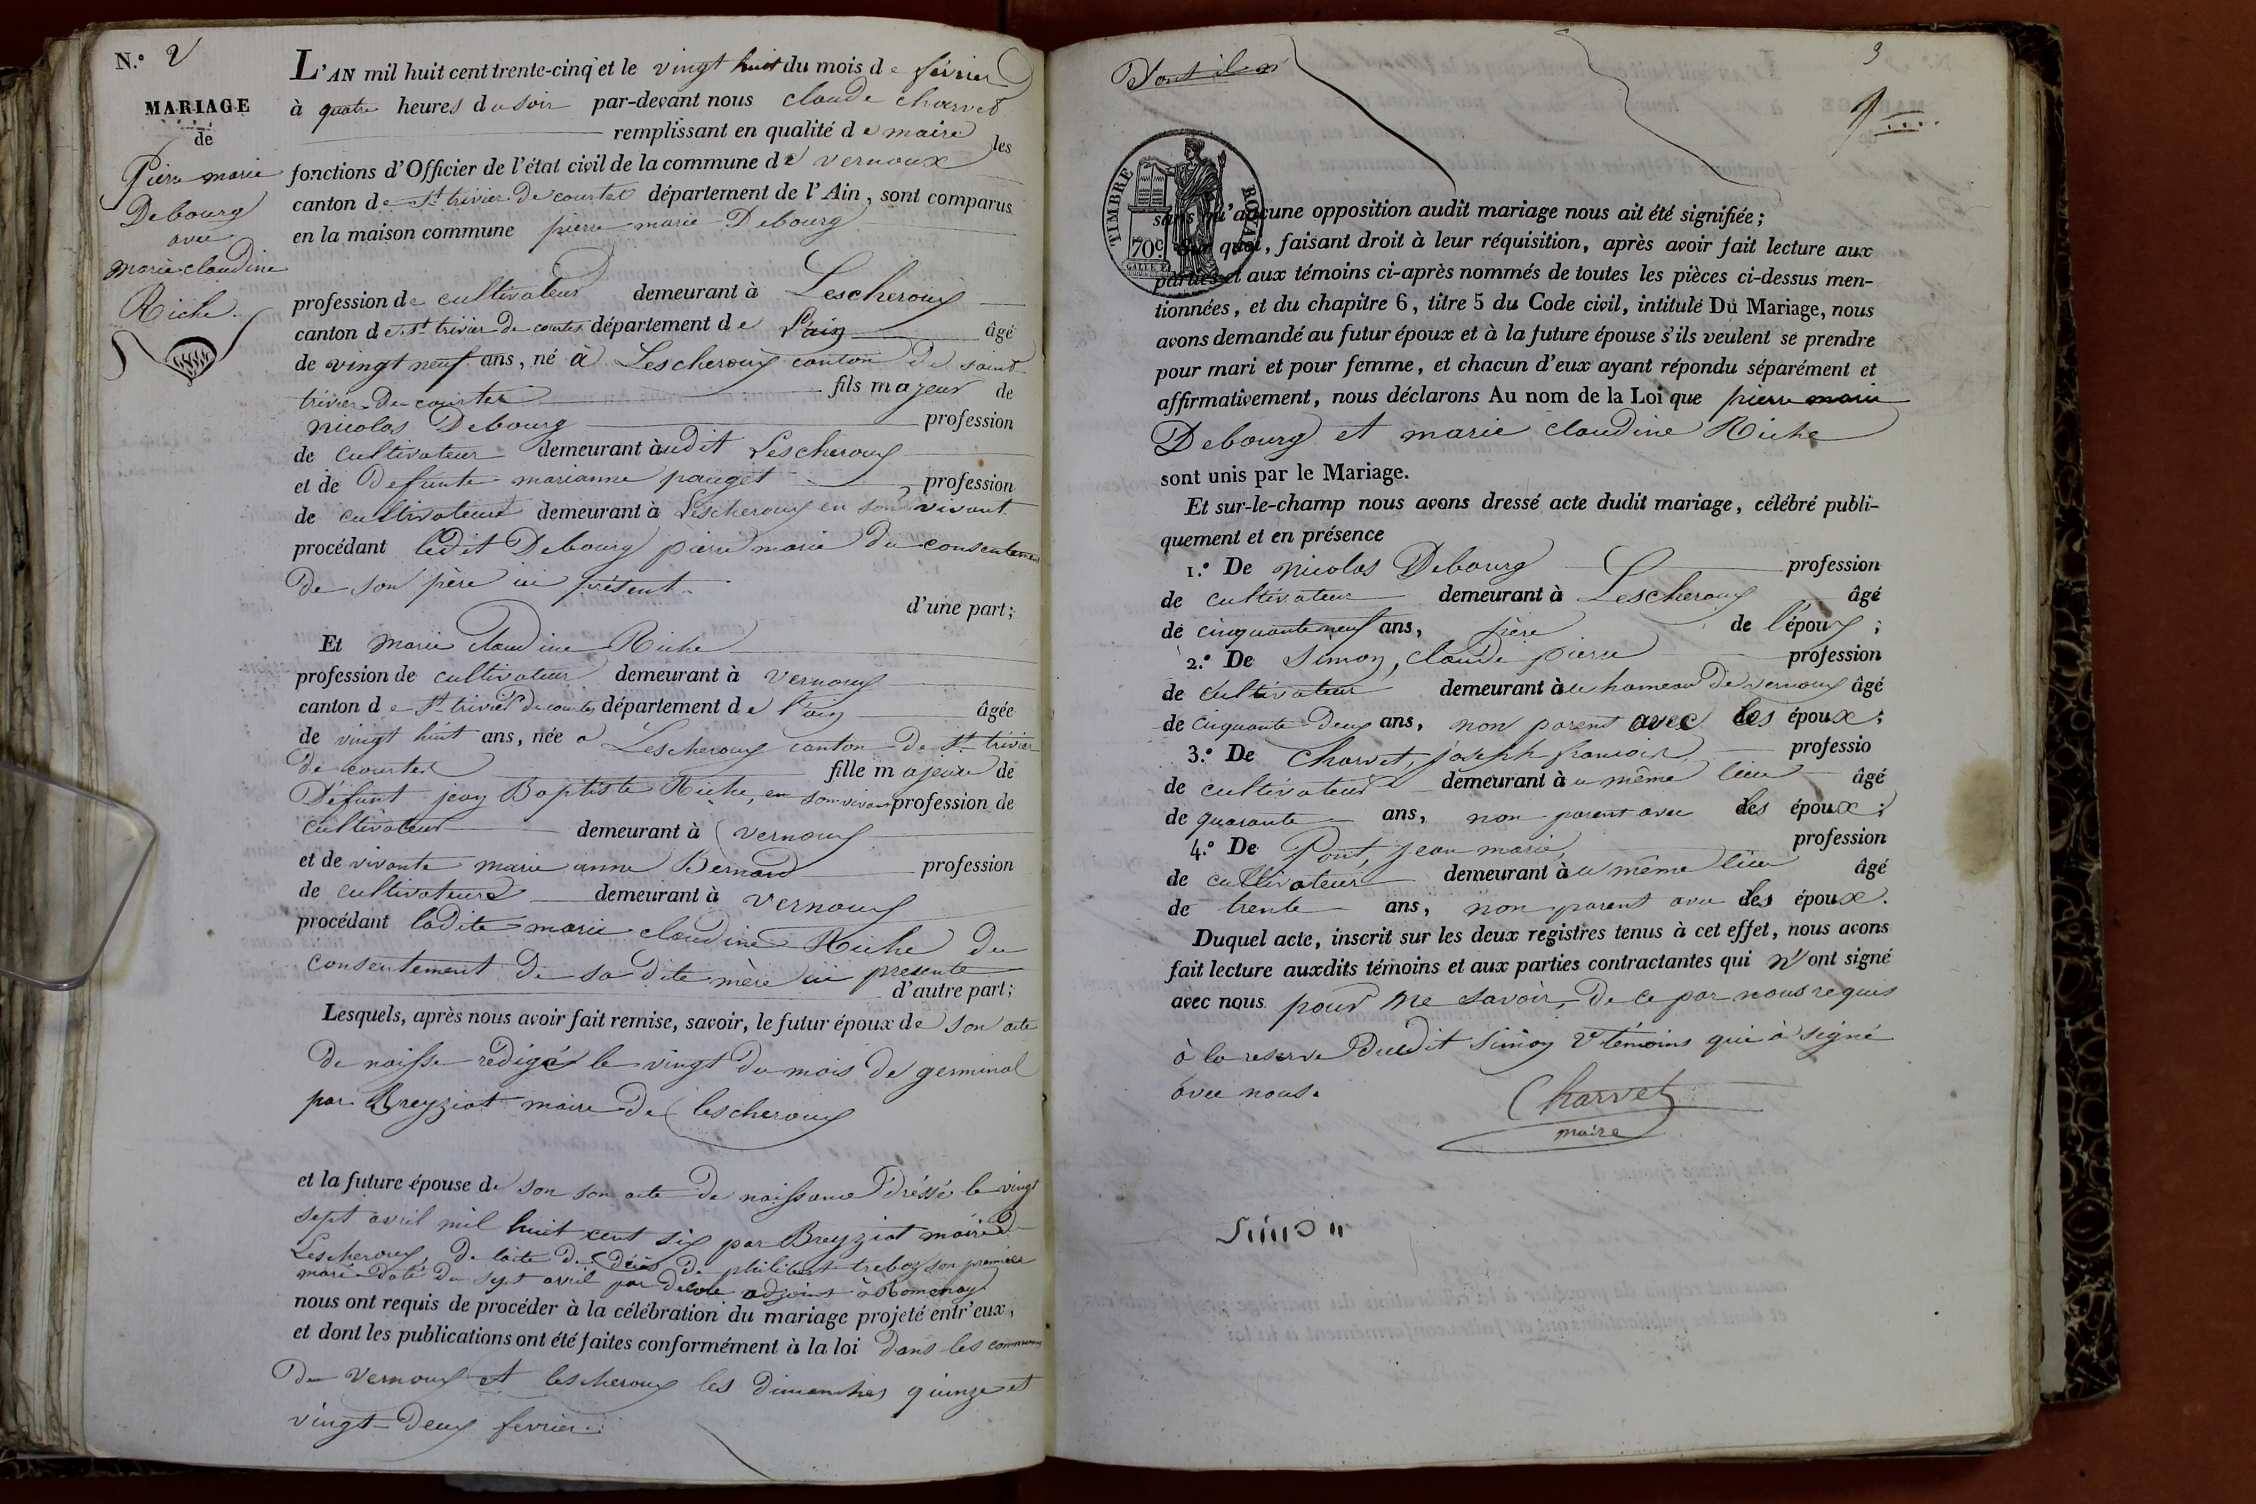 N.° 2
MARIAGE
de
Pierre marie
Debourg
avec
marie claudine
Riche.
L'AN mil huit cent trente-cinq et le vingt huit du mois de février
à quatre heures du soir par-devant nous claude charvet
remplissant en qualité de maire les
fonctions d'Officier de l'état civil de la commune de vernoux
canton de St trivier de courtes département de l'Ain, sont comparus
en la maison commune pierre marie Debourg
profession de cultivateur demeurant à Lescheroux
canton de St trivier de courtes département de l'ain âgé
de vingt neuf ans, né à Lescheroux canton de saint
trivier de courtes fils majeur de
nicolas Debourg profession
de cultivateur demeurant àudit Lescheroux
et de Defunte marianne pauget profession
de cultivateure demeurant à Lescheroux en son vivant
procédant ledit Debourg pierre marie du consentement
de son père ici présent.
d'une part;
Et marie claudine Riche
profession de cultivateur demeurant à vernoux
canton de St trivier de courtes département de l'ain âgée
de vingt huit ans, née a Lescheroux canton de St trivier
de courtes fille majeure de
Défunt jean Baptiste Riche, en son vivant profession de
cultivateur demeurant à vernoux
et de vivante marie anne Bernard profession
de cultivateure demeurant à vernoux
procédant ladite marie claudine Riche du
consentement de sa dite mère ici presente
d'autre part;
Lesquels, après nous avoir fait remise, savoir, le futur époux de son acte
de naisse redigé le vingt du mois de germinal
par Breyziat maire de lescheroux
et la future épouse de son son acte de naissance dréssé le vingt
sept avril mil huit cent six par Breyziat maire d
Lescheroux, de l'acte de décès de philibert treboz son premier
mari daté du sept avril par adjoint à Romenay
nous ont requis de procéder à la célébration du mariage projeté entr'eux,
et dont les publications ont été faites conformément à la loi dans les communes
de vernoux et lescheroux les dimanches quinze et
vingt-deux fevrier.
3
TIMBRE ROYAL
70c.
sans qu'aucune opposition audit mariage nous ait été signifiée;
Sur quoi, faisant droit à leur réquisition, après avoir fait lecture aux
parties et aux témoins ci-après nommés de toutes les pièces ci-dessus men-
tionnées, et du chapitre 6, titre 5 du Code civil, intitulé Du Mariage, nous
avons demandé au futur époux et à la future épouse s'ils veulent se prendre
pour mari et pour femme, et chacun d'eux ayant répondu séparément et
affirmativement, nous déclarons Au nom de la Loi que pierre marie
Debourg et marie claudine Riche
sont unis par le Mariage.
Et sur-le-champ nous avons dressé acte dudit mariage, célébré publi-
quement et en présence
1.° De nicolas Debourg profession
de cultivateur demeurant à Lescheroux âgé
de cinquante neuf ans, père de l'époux;
2.° De Simon, claude pierre profession
de cultivateur demeurant àu hameau de vernoux âgé
de cinquante-deux ans, non parent avec les époux;
3.° De Charvet, joseph francois profession
de cultivateur demeurant àu même lieu âgé
de quarante ans, non parent avec des époux;
4.° De Pont, jean marie, profession
de cultivateur demeurant àu même lieu âgé
de trente ans, non parent avec des époux.
Duquel acte, inscrit sur les deux registres tenus à cet effet, nous avons
fait lecture auxdits témoins et aux parties contractantes qui n'ont signé
avec nous pour ne savoir, de ce par nous requis
à la reserve dudit Simon 2e témoins qui à signé
avec nous.
Charvet
maire
Simon